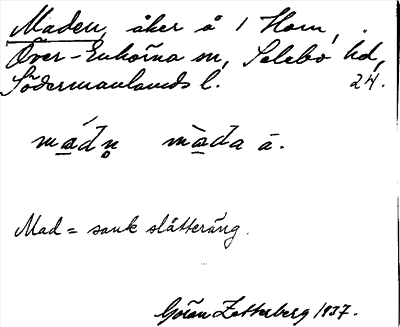 Maden, åker å 1 Ham,
Över-Enhörna sn, Selebo hd,
Södermanlands l. 24.
màdn̥ màda ä.
Mad = sank slåtteräng.
Göran Zetterberg 1937.